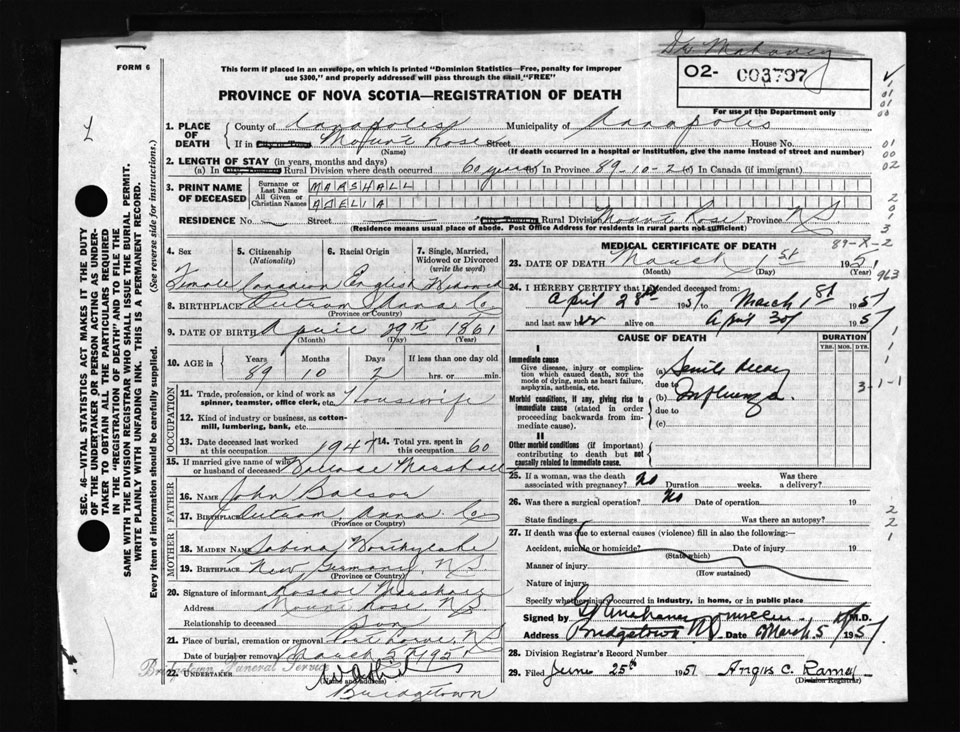 Dr Mahaney
FORM 6
This form if placed in an envelope, on which is printed "Dominion Statistics—Free, penalty for improper
use $300," and properly addressed will pass through the mail, "FREE"
02- 003797
For use of the Department only
PROVINCE OF NOVA SCOTIA—REGISTRATION OF DEATH
1. PLACE OF DEATH County of Annapolis Municipality of Annapolis
If in City or Town Mount Rose Street House No.
(Name) (If death occurred in a hospital or institution, give the name instead of street and number)
2. LENGTH OF STAY (in years, months and days)
(a) In City, Town or Rural Division where death occurred 60 years (b) In Province 89-10-2 (c) In Canada (if immigrant)
3. PRINT NAME OF DECEASED Surname or Last Name MARSHALL
All Given or Christian Names ADELIA
RESIDENCE No. Street City, Town or Rural Division Mount Rose Province N.S.
(Residence means usual place of abode. Post Office Address for residents in rural parts not sufficient)
4. Sex Female
5. Citizenship (Nationality) Canadian
6. Racial Origin English
7. Single, Married, Widowed or Divorced (write the word) Widowed
8. BIRTHPLACE Outram Anna Co
(Province or Country)
9. DATE OF BIRTH April 29th 1861
(Month) (Day) (Year)
10. AGE in Years Months Days If less than one day old
89 10 2 hrs. or min.
OCCUPATION
11. Trade, profession, or kind of work as spinner, teamster, office clerk, etc. Housewife
12. Kind of industry or business, as cotton-mill, lumbering, bank, etc.
13. Date deceased last worked at this occupation 1947 14. Total yrs. spent in this occupation 60
15. If married give name of wife or husband of deceased Marshall
FATHER
16. NAME John Balsor
17. BIRTHPLACE Outram Anna Co
(Province or Country)
MOTHER
18. MAIDEN NAME Sabina
19. BIRTHPLACE New Germany, N.S.
(Province or Country)
20. Signature of informant Roscoe Marshall
Address Mount Rose N.S.
Relationship to deceased Son
21. Place of burial, cremation or removal Port Lorne, N.S
Date of burial or removal March 1951
Bridgetown Funeral Service
22. UNDERTAKER
(Name and address)
Bridgetown
MEDICAL CERTIFICATE OF DEATH 89-X-2
23. DATE OF DEATH March 1st 1951
(Month) (Day) (Year)
963
24. I HEREBY CERTIFY that I attended deceased from:
April 28th 1951 to March 1st 1951
and last saw her alive on April 30 1951
CAUSE OF DEATH DURATION
YRS. MOS. DYS.
I
Immediate cause
Give disease, injury or complication which caused death, not the mode of dying, such as heart failure, asphyxia, asthenia, etc.
(a) Senile decay
due to
Morbid conditions, if any, giving rise to immediate cause (stated in order proceeding backwards from immediate cause).
(b) Influenza.
due to
(c)
3-1-1
II
Other morbid conditions (if important) contributing to death but not causally related to immediate cause.
25. If a woman, was the death associated with pregnancy? No Duration weeks. Was there a delivery?
26. Was there a surgical operation? No Date of operation 19
State findings Was there an autopsy?
27. If death was due to external causes (violence) fill in also the following:—
Accident, suicide or homicide? Date of injury 19
(State which)
Manner of injury
(How sustained)
Nature of injury
Specify whether injury occurred in industry, in home, or in public place
Signed by M.D.
Address Bridgetown NS Date March 5 1951
28. Division Registrar's Record Number
29. Filed June 25th 1951 Angus C. Ramey
(Division Registrar)
SEC. 46—VITAL STATISTICS ACT MAKES IT THE DUTY
OF THE UNDERTAKER OR PERSON ACTING AS UNDER-
TAKER TO OBTAIN ALL THE PARTICULARS REQUIRED
IN THE "REGISTRATION OF DEATH" AND TO FILE THE
SAME WITH THE DIVISION REGISTRAR WHO SHALL ISSUE THE BURIAL PERMIT.
WRITE PLAINLY WITH UNFADING INK. THIS IS A PERMANENT RECORD.
Every item of information should be carefully supplied. (See reverse side for instructions.)